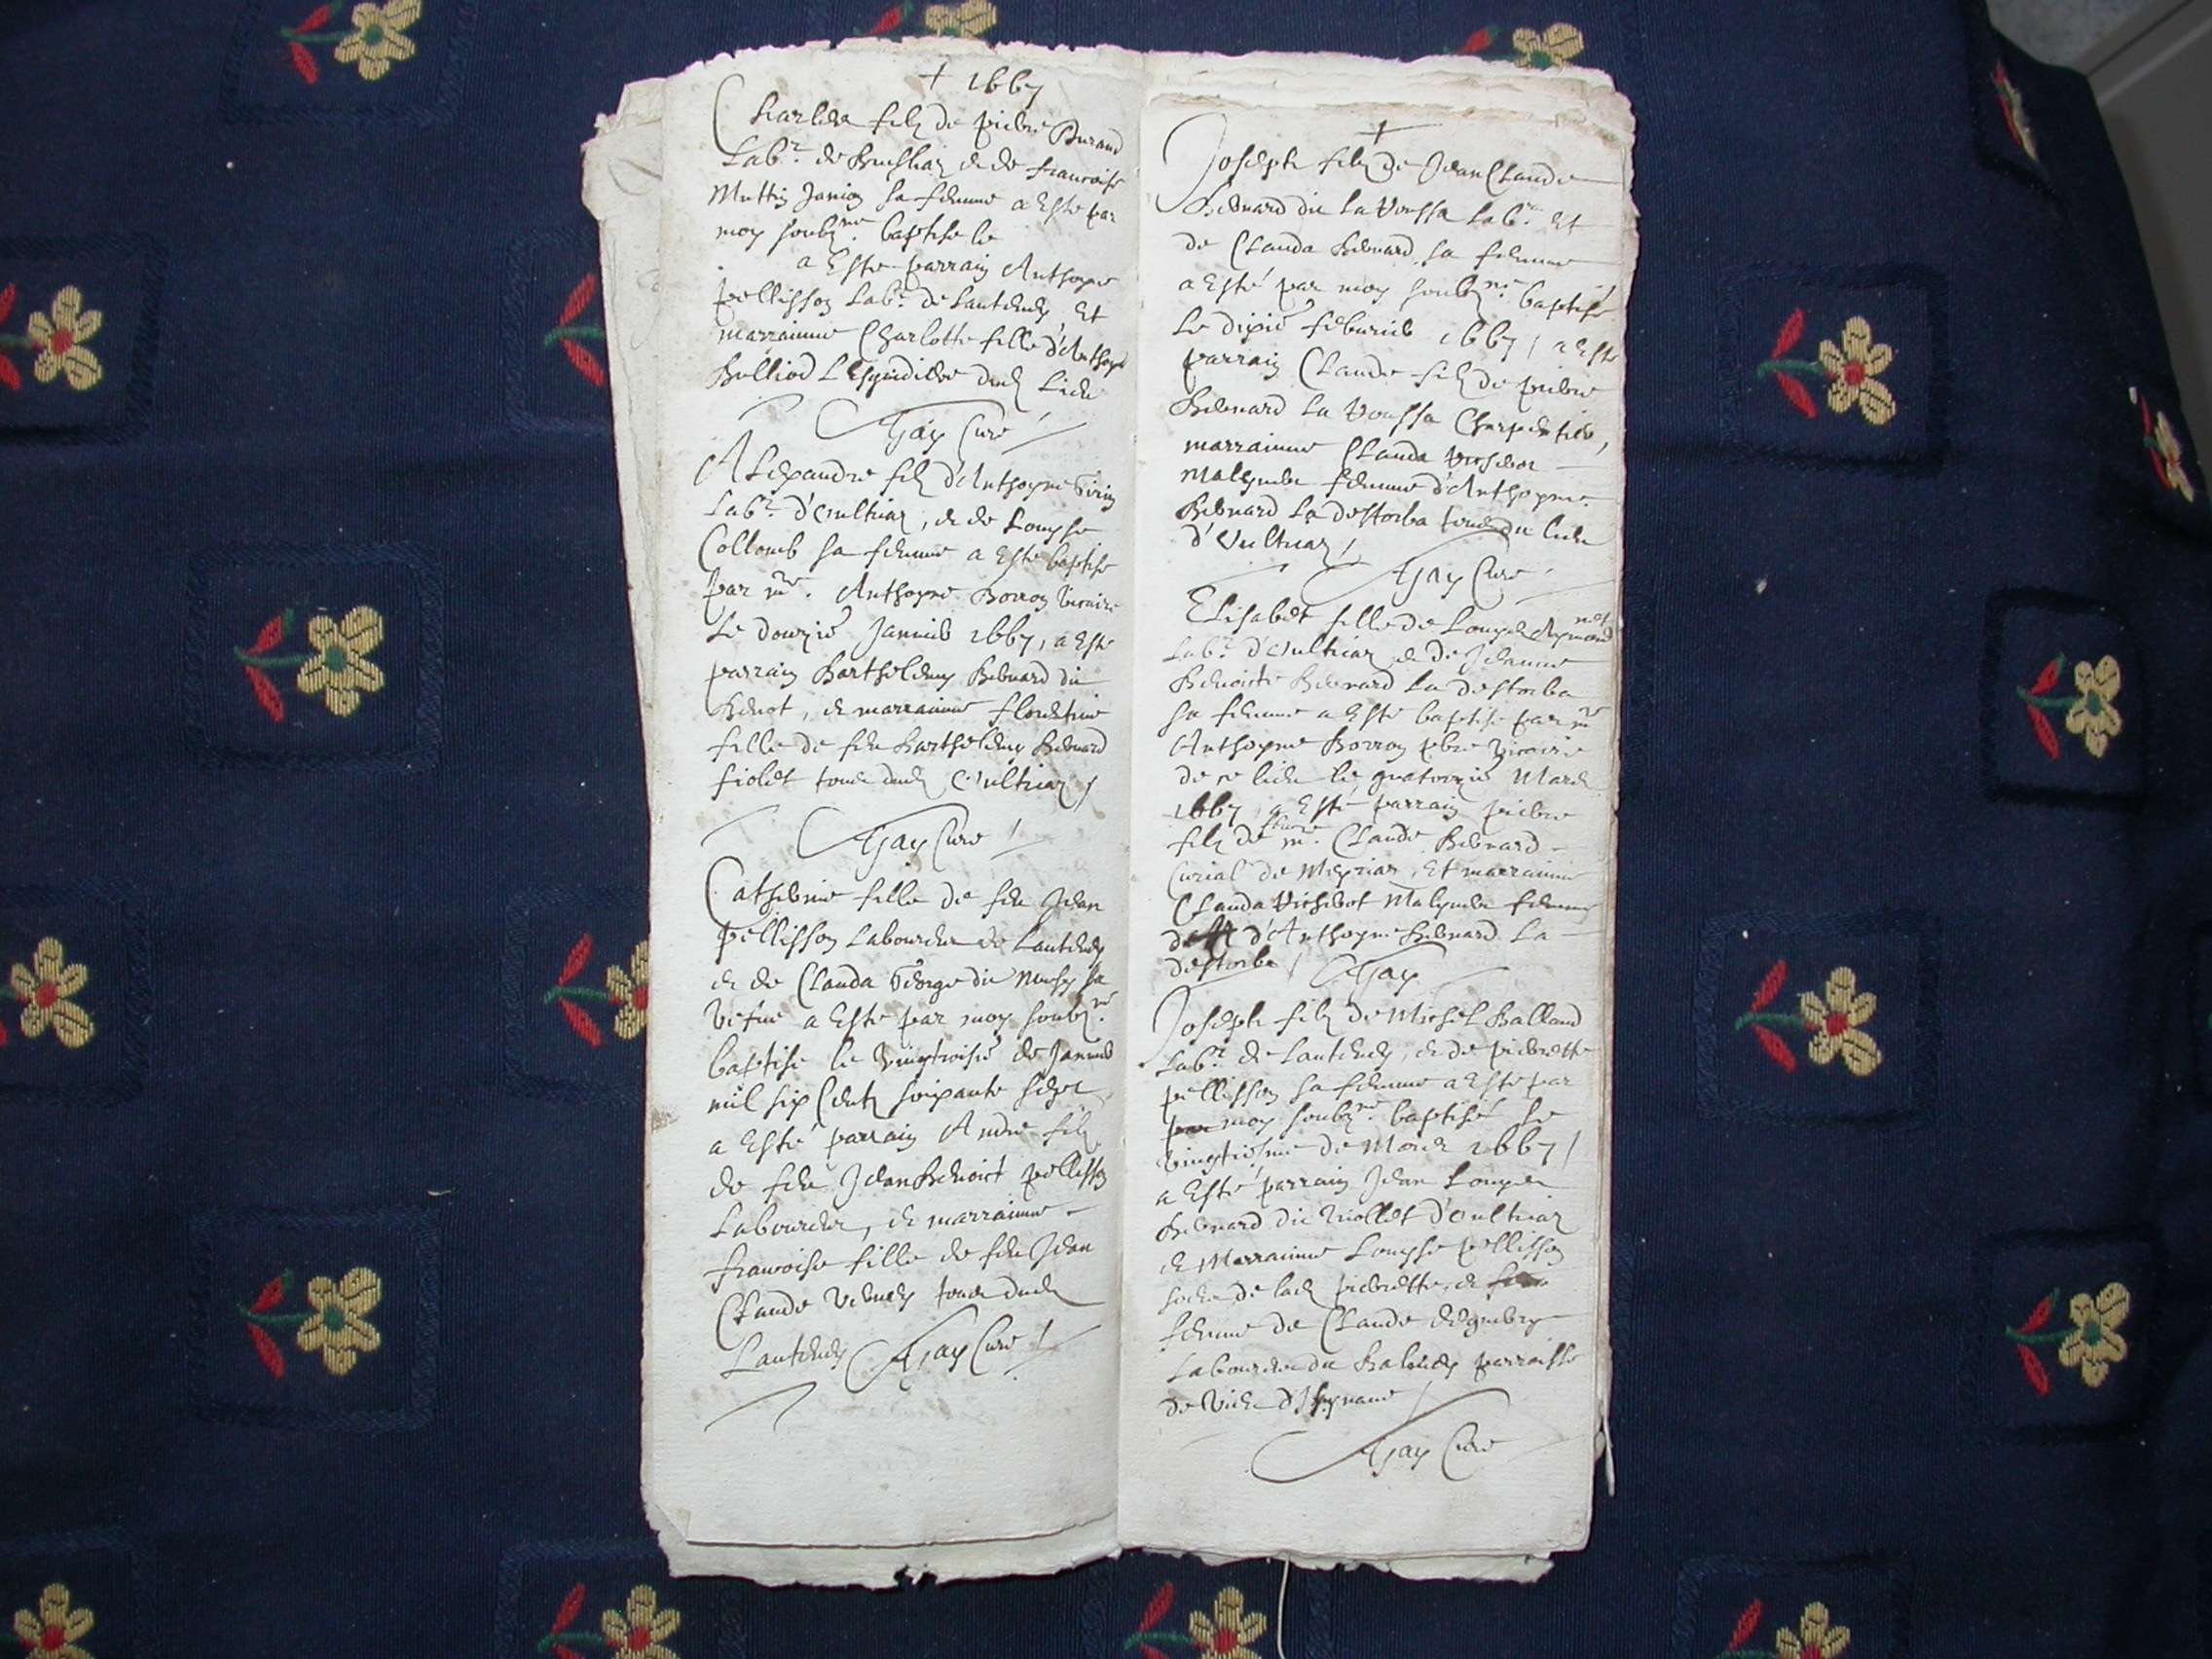 + 1667
Charles filz de pierre Durand
Lab.r de Brushiaz & de francoise
Muttin Janin sa femme a Esté par
moy soubz.né baptise le
a Este parrain Anthoyne
pellisson Lab.r de Lantenay Et
marraine Charlotte fille d'Anthoyne
Bulliod L'Espindiere dud. Lieu
Gay Curé
Alexandre filz d'Anthoyne
Lab.r d'Oultriaz, & de Louyse
Collomb sa femme a Esté baptise
par m.re Anthoyne Borron vicaire
Le douzie Janvier 1667, a Este
parrain Barthelemy Bernard dit
Benot, & marraine florentine
fille de feu Barthelemy Bernard
fiolet tous dud. Oultriaz
Gay Curé
Catherine fille de feu Jean
pellisson Laboureur de Lantenay
& de Clauda George dit Musy sa
vefve a Este par moy soubz.né
baptise le vingtroisie de Janvier
mil six Centz soixante sept
a Esté parrain André filz
de feu Jean Benoict pellisson
Laboureur, & marraine
francoise fille de feu Jean
Claude Vernay tous dud.
Lantenay Gay Curé
+
Joseph filz de Jean Claude
Bernard dit La Voussa Lab.r Et
de Clauda Bernard sa femme
a Esté par moy soubz.né baptisé
Le dixie feburier 1667 / a Este
parrain Claude filz de pierre
Bernard La Voussa Charpentier,
marraine Clauda
Malymbe femme d'Anthoyne
Bernard La destorba tous du lieu
d'Oultriaz /
Gay Curé
Elisabet fille de Louys Aymond
net
Lab.r d'Oultriaz & de Jeanne
Benoicte Bernard La destorba
sa femme a Esté baptise par m.re
Anthoyne Borron pbre vicaire
de ce lieu le quatorzie Mars
1667, a Esté parrain pierre
filz de m.re Claude Bernard
Curial de Meyriaz, Et marraine
Clauda Malymbe femme
d'Anthoyne Bernard La
destorba / Gay
Joseph filz de Michel Balland
Lab.r de Lantenay, & de pierrette
pellisson sa femme a Este par
par moy soubz.né baptisé le
vingtiesme de Mars 1667 /
a Esté parrain Jean Louys
Bernard dit Viollet d'Oultriaz
& Marraine Louyse pellisson
soeur de lad. pierrette, &
femme de Claude
Laboureur du Balmay parroisse
de Vieu d'Isernave /
Gay Curé